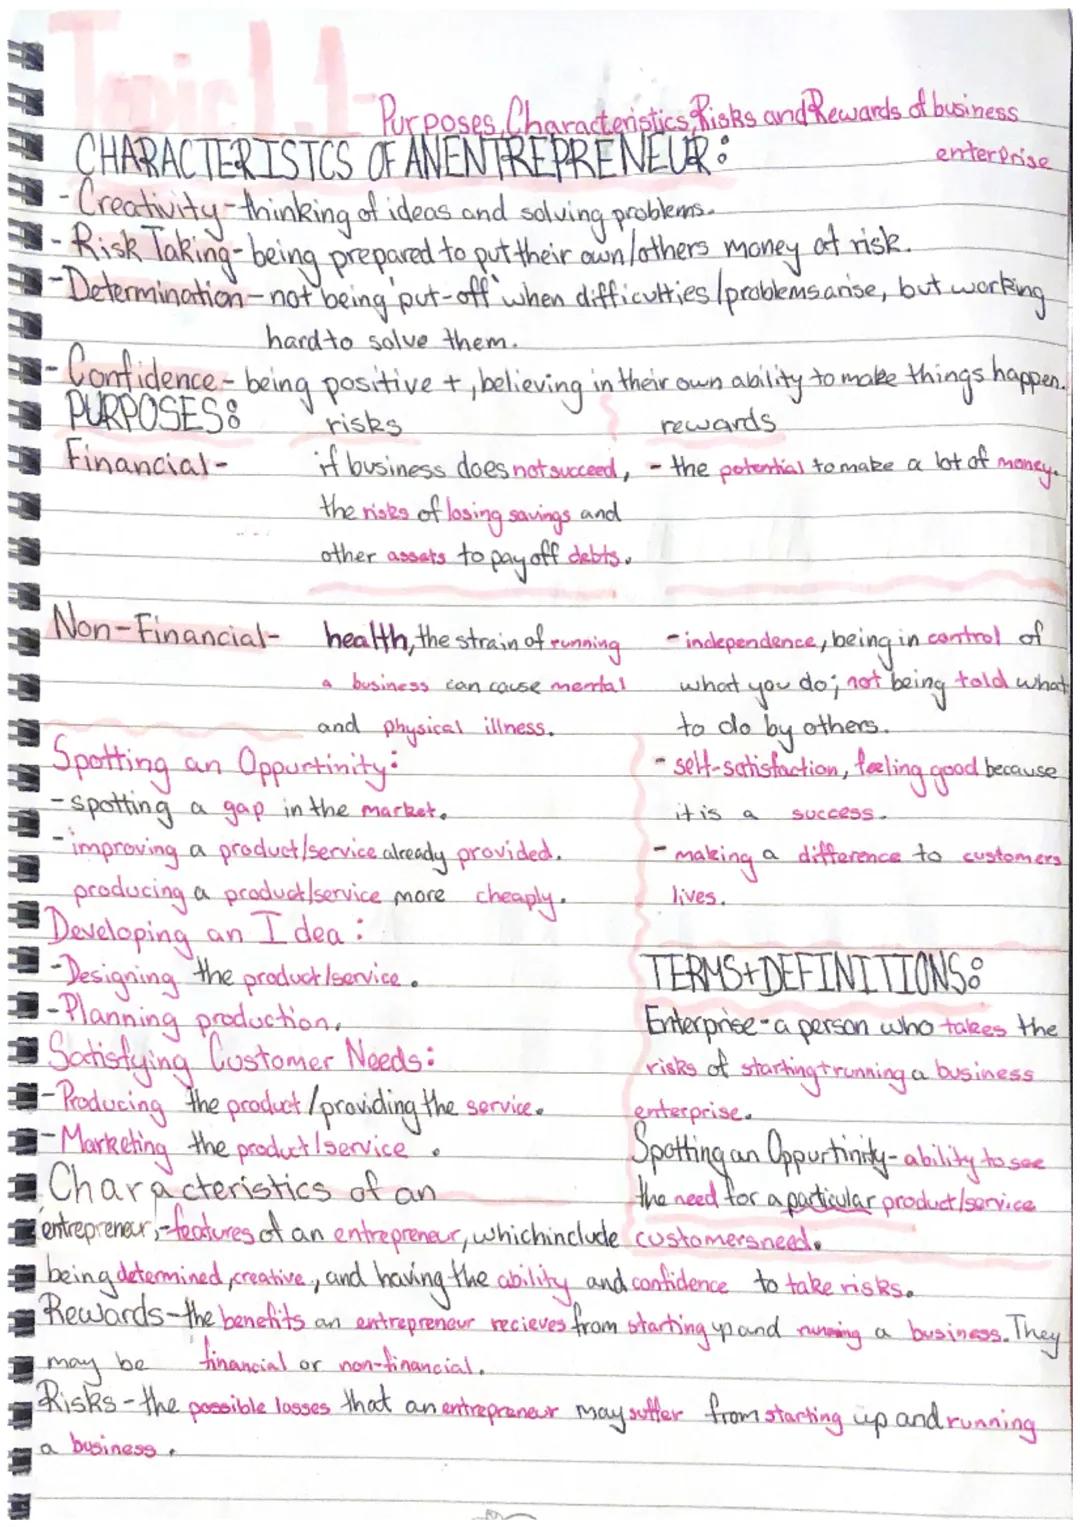 Topic 1.1-
Purposes, Characteristics, Risks and Rewards of business
enterprise
CHARACTERISTCS OF AN ENTREPRENEUR:
- Creativity - thinking of ideas and solving problems.
- Risk Taking - being prepared to put their own/others money at risk.
- Determination - not being 'put-off' when difficulties/problems arise, but working
hard to solve them.
- Confidence - being positive +, believing in their own ability to make things happen.
PURPOSES:
risks
rewards
Financial -
if business does not succeed,
the risks of losing savings and
other assets to pay off debts.
- the potential to make a lot of money.
Non-Financial-
health, the strain of running
a business can cause mental
and physical illness.
- independence, being in control of
what you do; not being told what
to do by others.
- self-satisfaction, feeling good because
it is a success.
- making a difference to customers
lives.
Spotting an Oppurtinity:
- spotting a gap in the market.
- improving a product/service already provided.
producing a product/service more cheaply.
Developing an Idea:
- Designing the product/service.
- Planning production.
Satisfying Customer Needs:
- Producing the product/providing the service.
- Marketing the product/service.
TERMS + DEFINITIONS:
Enterprise - a person who takes the
risks of starting + running a business
enterprise.
Spotting an Oppurtinity - ability to see
the need for a particular product/service
customers need.
Characteristics of an
entrepreneur, - features of an entrepreneur, which include
being determined, creative, and having the ability and confidence to take risks.
Rewards - the benefits an entrepreneur recieves from starting up and running a business. They
may be financial or non-financial.
Risks - the possible losses that an entrepreneur may suffer from starting up and running
a business.